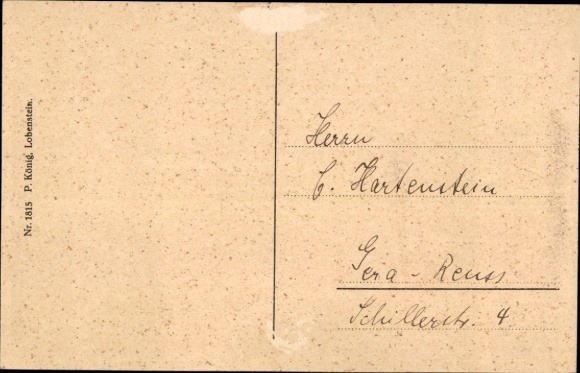 Nr. 1815 P. König, Lobenstein.
Herrn
C. Hartenstein
Gera - Reuss
Schillerstr. 4